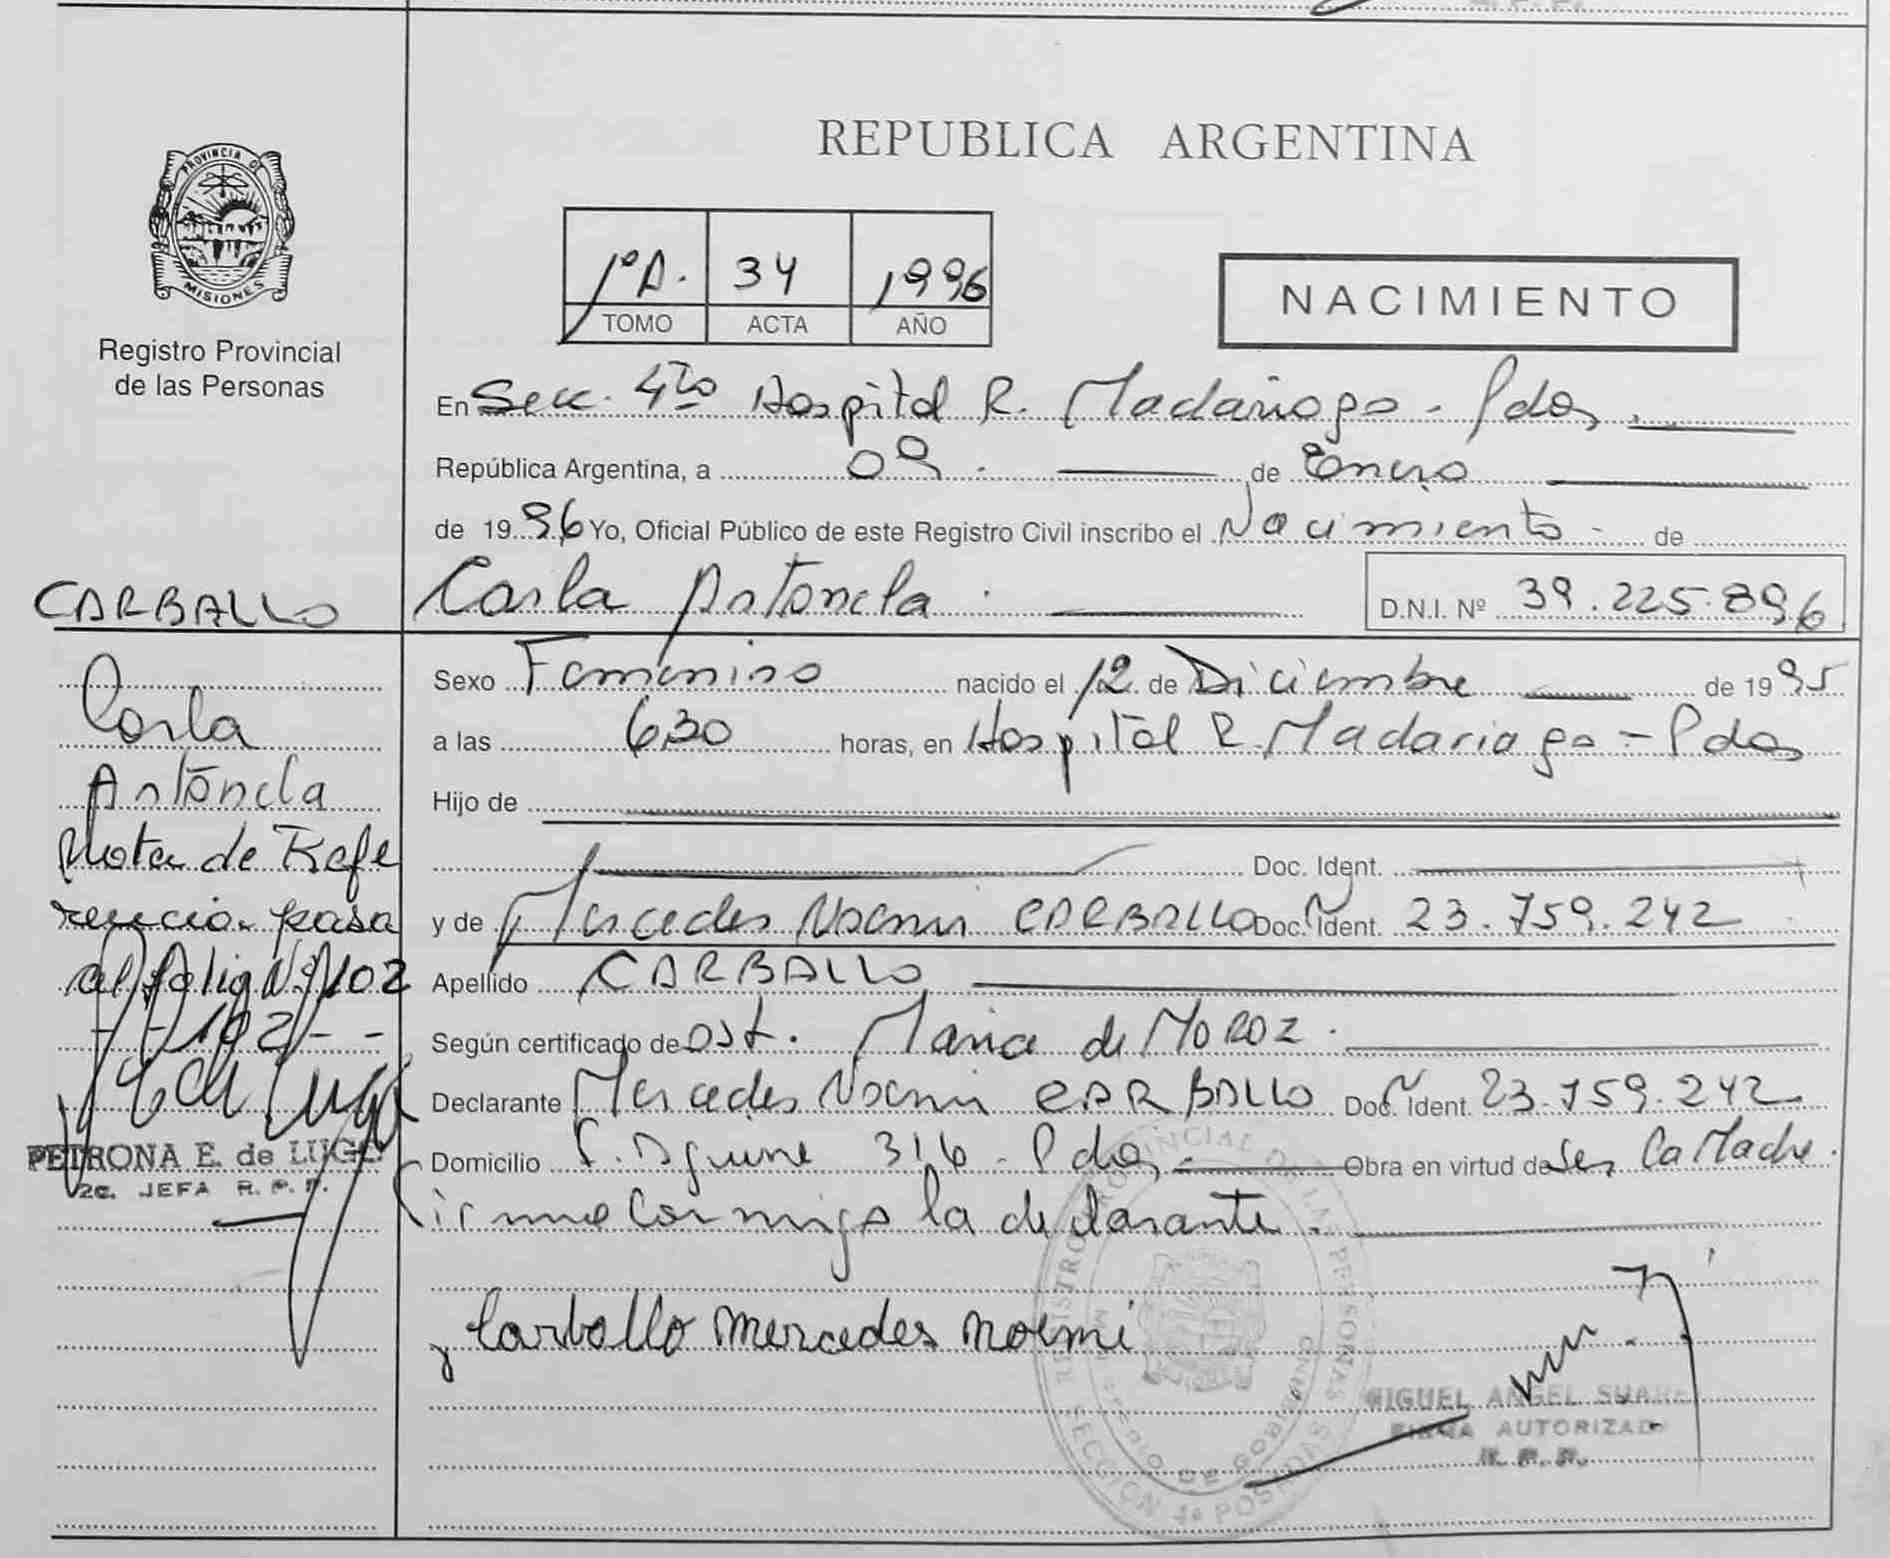 PROVINCIA DE
MISIONES
Registro Provincial
de las Personas
REPUBLICA ARGENTINA
1º A. 34 1996
TOMO ACTA AÑO
NACIMIENTO
En Secc. 4ta Hospital R. Madariaga - Pdas.
República Argentina, a 09 de Enero
de 1996 Yo, Oficial Público de este Registro Civil inscribo el Nacimiento - de
Carla Antonela D.N.I. Nº 39.225.896
Sexo Femenino nacido el 12 de Diciembre de 1995
a las 6,30 horas, en Hospital R. Madariaga - Pdas
Hijo de
Doc. Ident.
y de Mercedes Noemi CARBALLO Doc. Ident. 23.759.242
Apellido CARBALLO
Según certificado de Ost. Maria de MOROZ.
Declarante Mercedes Noemi CARBALLO Doc. Ident. 23.759.242
Domicilio F. Aguirre 316 - Pdas, Obra en virtud de Ser La Madre.
Firma Conmigo la declarante.
Carballo Mercedes Noemi
MIGUEL ANGEL SUAREZ
FIRMA AUTORIZADA
R. P. P.
REGISTRO PROVINCIAL DE LAS PERSONAS
SECCION 4ª POSADAS
DE GOBIERNO
CARBALLO
Carla
Antonela
Nota de Refe
rencia pasa
al folio Nº 102
- - 102 - -
PETRONA E. de LUGO
2a. JEFA R. P. P.